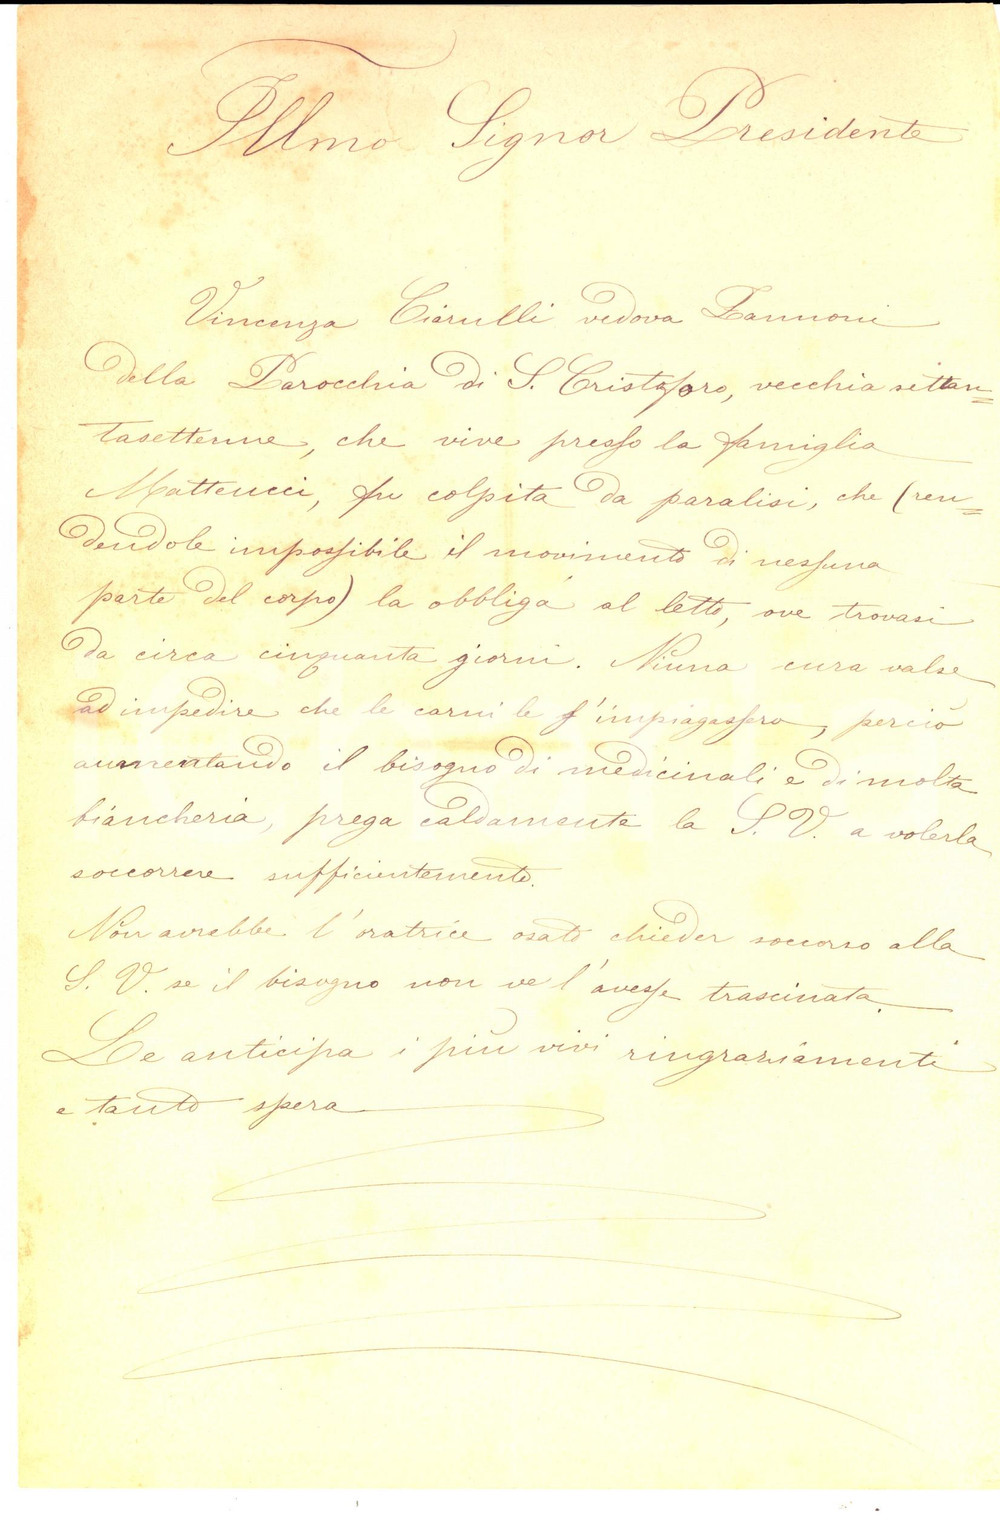 Illmo Signor Presidente
Vincenza Ciarulli vedova Zannoni
della Parocchia di S. Cristoforo, vecchia settan=
tasettenne, che vive presso la famiglia
Matteucci, fu colpita da paralisi, che (ren=
dendole impossibile il movimento di nessuna
parte del corpo) la obbligà al letto, ove trovasi
da circa cinquanta giorni. Niuna cura valse
ad impedire che le carni le s'impiagassero, perciò
aumentando il bisogno di medicinali e di molta
biancheria, prega caldamente la S. V. a volerla
soccorrere sufficientemente.
Non avrebbe l'oratrice osato chieder soccorso alla
S. V. se il bisogno non ve l'avesse trascinata.
Le anticipa i più vivi ringraziamenti
e tanto spera